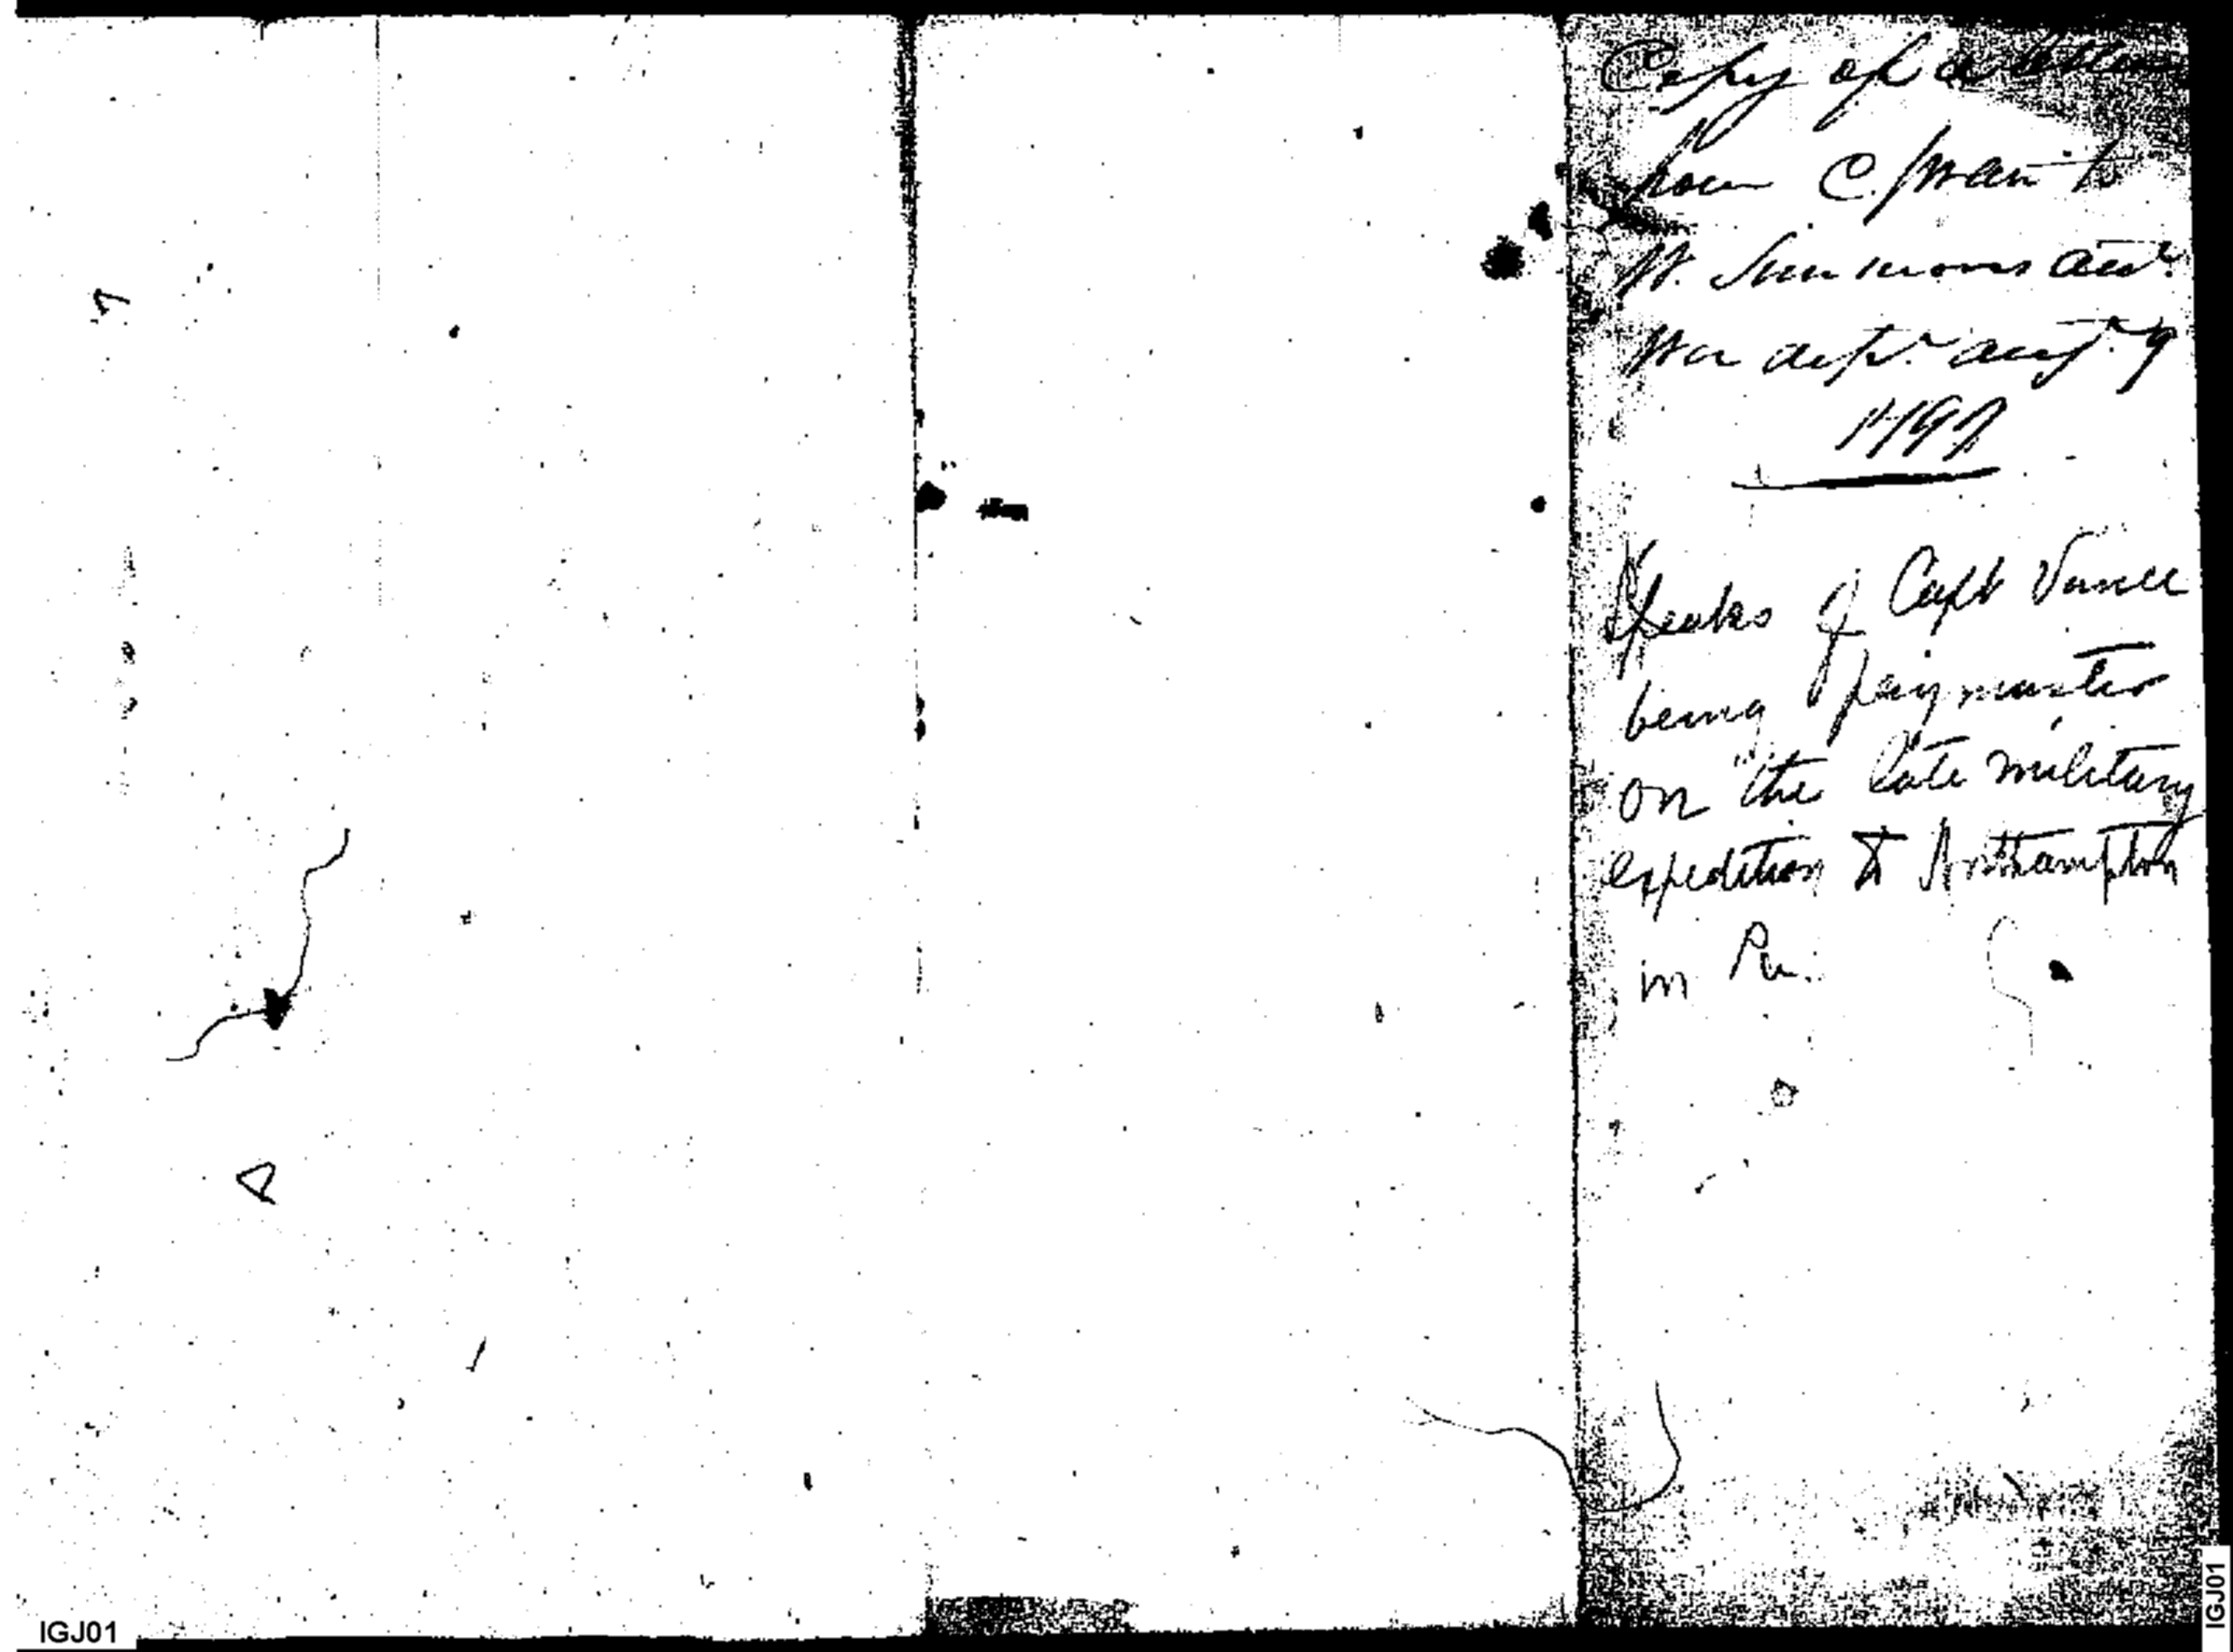 Copy of a letter
from C. Swan to
W. Simmons acct.
War dept. augt. 9
1799
Speaks of Capt Vance
being paymaster
on "the late military
expedition to Northampton
in Pa.
IGJ01
IGJ01